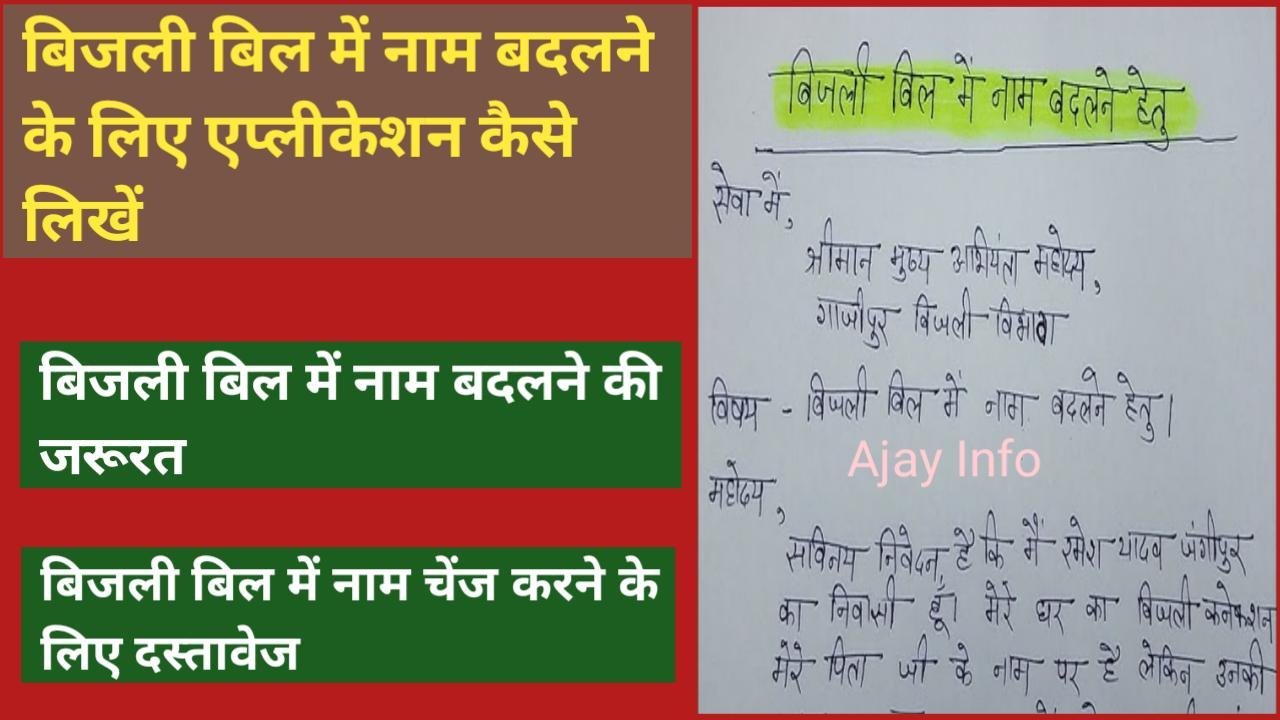 बिजली बिल में नाम बदलने
के लिए एप्लीकेशन कैसे
लिखें
बिजली बिल में नाम बदलने की
जरूरत
बिजली बिल में नाम चेंज करने के
लिए दस्तावेज
बिजली बिल में नाम बदलने हेतु
सेवा में,
श्रीमान मुख्य अभियंता महोदय,
गाजीपुर बिजली विभाग
विषय - बिजली बिल में नाम बदलने हेतु।
Ajay Info
महोदय,
सविनय निवेदन है कि मैं रमेश यादव जंगीपुर
का निवासी हूँ। मेरे घर का बिजली कनेक्शन
मेरे पिता जी के नाम पर है लेकिन उनकी